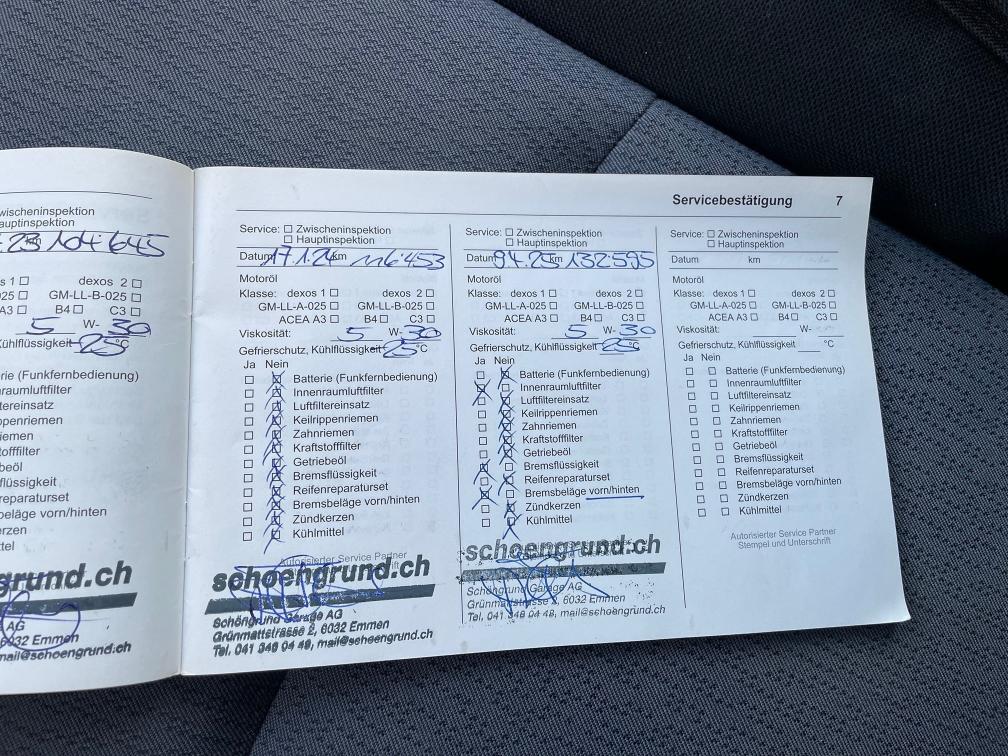 Servicebestätigung 7
Zwischeninspektion
Hauptinspektion
23 km 104.645
dexos 2
GM-LL-B-025
A3 B4 C3
5 W-30
Kühlflüssigkeit 25 °C
(Funkfernbedienung)
vorn/hinten
grund.ch
AG
6032 Emmen
mail@schoengrund.ch
Service: Zwischeninspektion
Hauptinspektion
Datum 17.1.24 km 116.453
Motoröl
Klasse: dexos 1 dexos 2
GM-LL-A-025 GM-LL-B-025
ACEA A3 B4 C3
Viskosität: 5 W-30
Gefrierschutz, Kühlflüssigkeit 25 °C
Ja Nein
Batterie (Funkfernbedienung)
Innenraumluftfilter
Luftfiltereinsatz
Keilrippenriemen
Zahnriemen
Kraftstofffilter
Getriebeöl
Bremsflüssigkeit
Reifenreparaturset
Bremsbeläge vorn/hinten
Zündkerzen
Kühlmittel
Autorisierter Service Partner
schoengrund.ch
Schöngrund Garage AG
Grünmattstrasse 2, 6032 Emmen
Tel. 041 349 04 49, mail@schoengrund.ch
Service: Zwischeninspektion
Hauptinspektion
Datum 9.4.25 km 132.595
Motoröl
Klasse: dexos 1 dexos 2
GM-LL-A-025 GM-LL-B-025
ACEA A3 B4 C3
Viskosität: 5 W-30
Gefrierschutz, Kühlflüssigkeit 25 °C
Ja Nein
Batterie (Funkfernbedienung)
Innenraumluftfilter
Luftfiltereinsatz
Keilrippenriemen
Zahnriemen
Kraftstofffilter
Getriebeöl
Bremsflüssigkeit
Reifenreparaturset
Bremsbeläge vorn/hinten
Zündkerzen
Kühlmittel
schoengrund.ch
Schöngrund Garage AG
Grünmattstrasse 2, 6032 Emmen
Tel. 041 349 04 49, mail@schoengrund.ch
Service: Zwischeninspektion
Hauptinspektion
Datum km
Motoröl
Klasse: dexos 1 dexos 2
GM-LL-A-025 GM-LL-B-025
ACEA A3 B4 C3
Viskosität: W-
Gefrierschutz, Kühlflüssigkeit °C
Ja Nein
Batterie (Funkfernbedienung)
Innenraumluftfilter
Luftfiltereinsatz
Keilrippenriemen
Zahnriemen
Kraftstofffilter
Getriebeöl
Bremsflüssigkeit
Reifenreparaturset
Bremsbeläge vorn/hinten
Zündkerzen
Kühlmittel
Autorisierter Service Partner
Stempel und Unterschrift